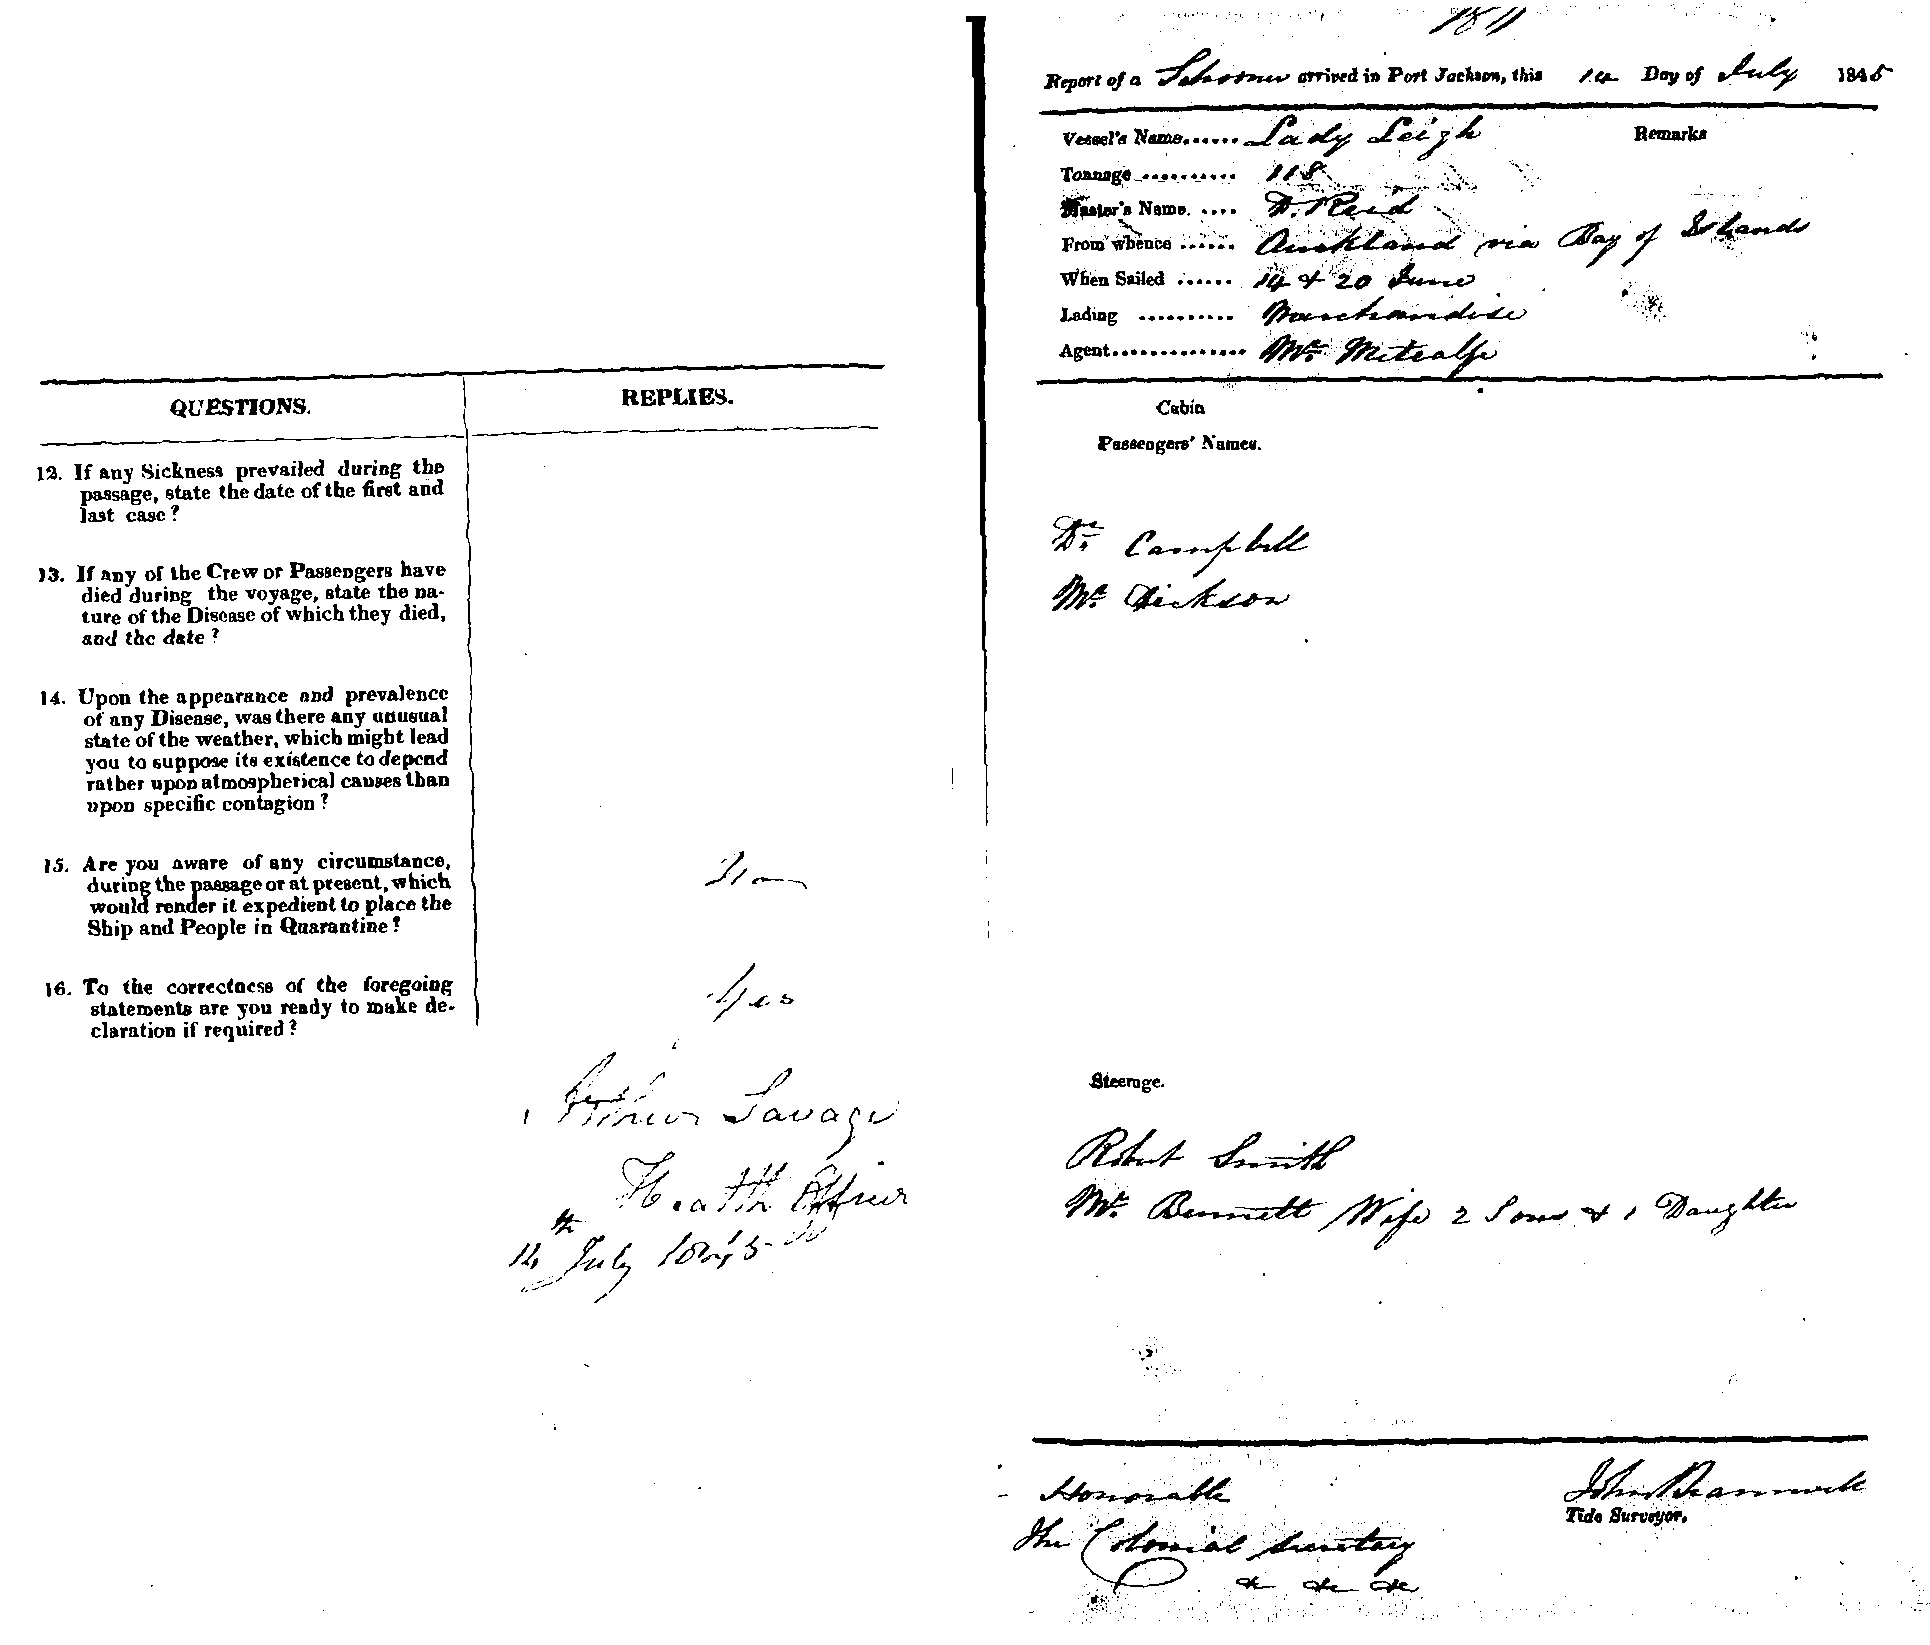 QUESTIONS.
REPLIES.
12. If any Sickness prevailed during the
passage, state the date of the first and
last case?
13. If any of the Crew or Passengers have
died during the voyage, state the na-
ture of the Disease of which they died,
and the date?
14. Upon the appearance and prevalence
of any Disease, was there any unusual
state of the weather, which might lead
you to suppose its existence to depend
rather upon atmospherical causes than
upon specific contagion?
15. Are you aware of any circumstance,
during the passage or at present, which
would render it expedient to place the
Ship and People in Quarantine?
16. To the correctness of the foregoing
statements are you ready to make de-
claration if required?
Yes
Arthur Savage
Health Officer
14th July 1845
Report of a Schooner arrived in Port Jackson, this 14 Day of July 1845
Vessel's Name...... Lady Leigh
Remarks
Tonnage .......... 118
Master's Name. .... D. Reid
From whence ...... Auckland via Bay of Islands
When Sailed ...... 14 & 20 June
Lading .......... Merchandise
Agent.............. Mr. Metcalfe
Cabin
Passengers' Names.
Dr. Campbell
Mr. Dickson
Steerage.
Robert Smith
Mr. Bennett Wife 2 Sons & 1 Daughter
Honorable
The Colonial Secretary
&c &c &c
John Bramwell
Tide Surveyor.